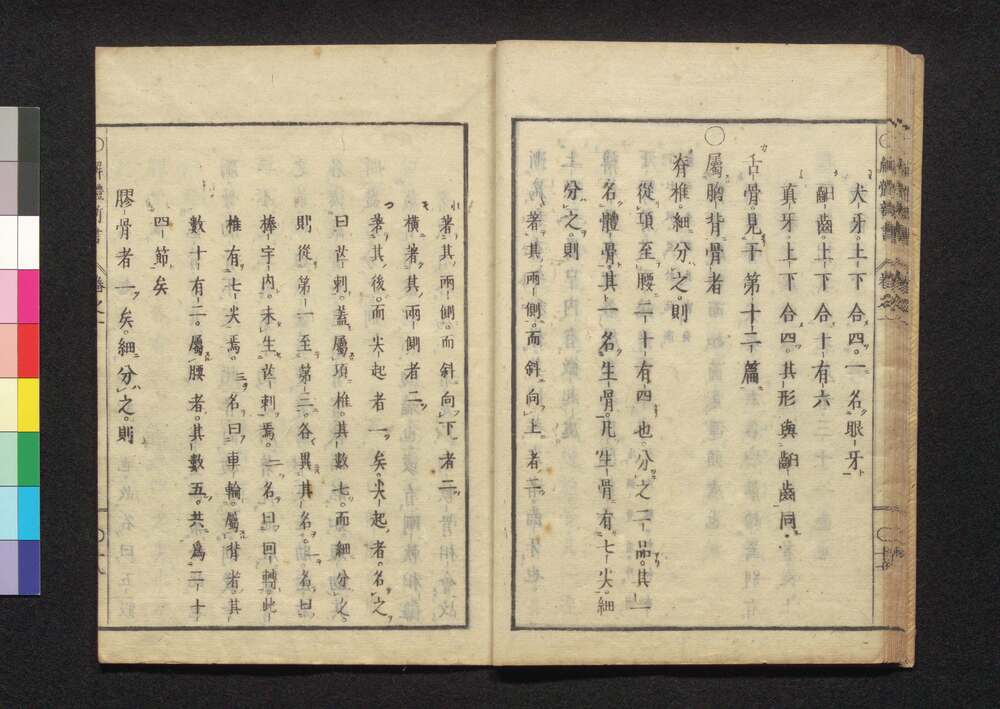 犬牙。上下合四。一名眼牙
齠齒。上下合十有六
真牙。上下合四。其形與齠齒同。
舌骨。見于第十二篇
○屬胸背骨者
脊椎。細分之。則
從項至腰。二十有四也。分之二品。其一
名體骨。其一名生骨。凡生骨有七尖。細
分之。則
著其兩側。而斜向上者二
著其兩側。而斜向下者二
橫著其兩側者二
著其後。而尖起者一矣。尖起者。名之
曰芒刺。蓋屬項椎。其數七。而細分之。
則從第一至第二。各異其名。一名曰
棒宇內。未生芒刺焉。二名曰回轉。此
椎有七尖焉。三名曰車輪。屬背者。其
數十有二。屬腰者。其數五。共爲二十
四節矣
膠骨者一矣。細分之。則
解體
卷之一